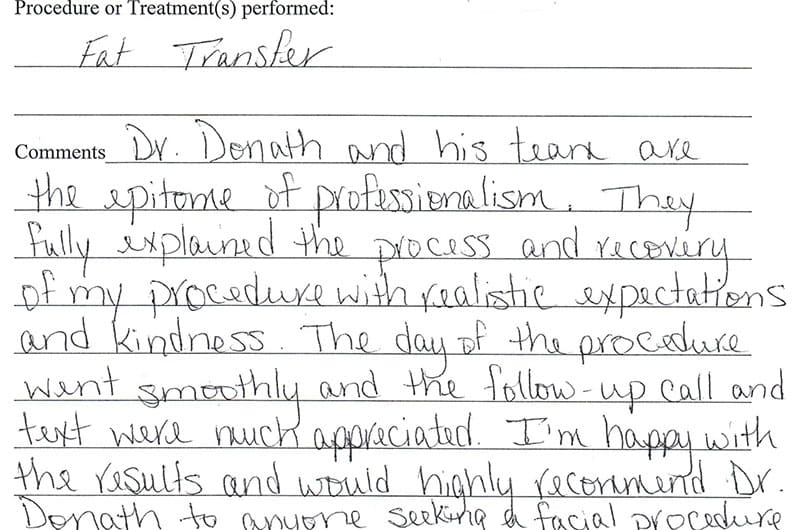 Procedure or Treatment(s) performed:
Fat Transfer
Comments Dr. Donath and his team are
the epitome of professionalism. They
fully explained the process and recovery
of my procedure with realistic expectations
and kindness. The day of the procedure
went smoothly and the follow-up call and
text were much appreciated. I'm happy with
the results and would highly recommend Dr.
Donath to anyone seeking a facial procedure